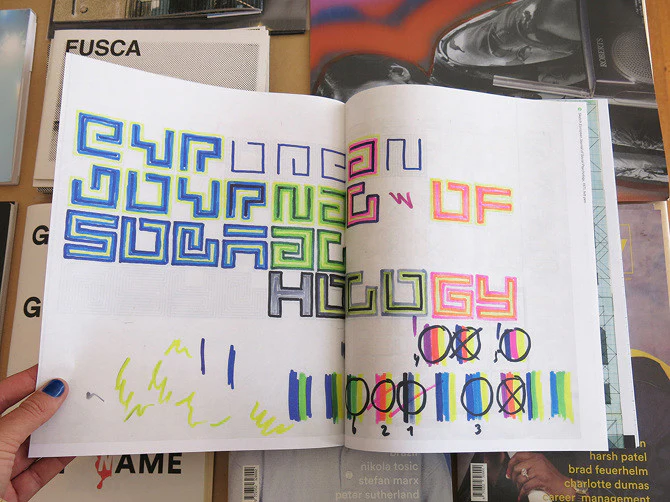 FUSCA
ROBERTS
EUROPEAN
JOURNAL W OF
SOCIAL
HOLOGY
6 2 1 3
G
G
WAME
nikola tosic
stefan marx
peter sutherland
harsh patel
brad feuerhelm
charlotte dumas
career management